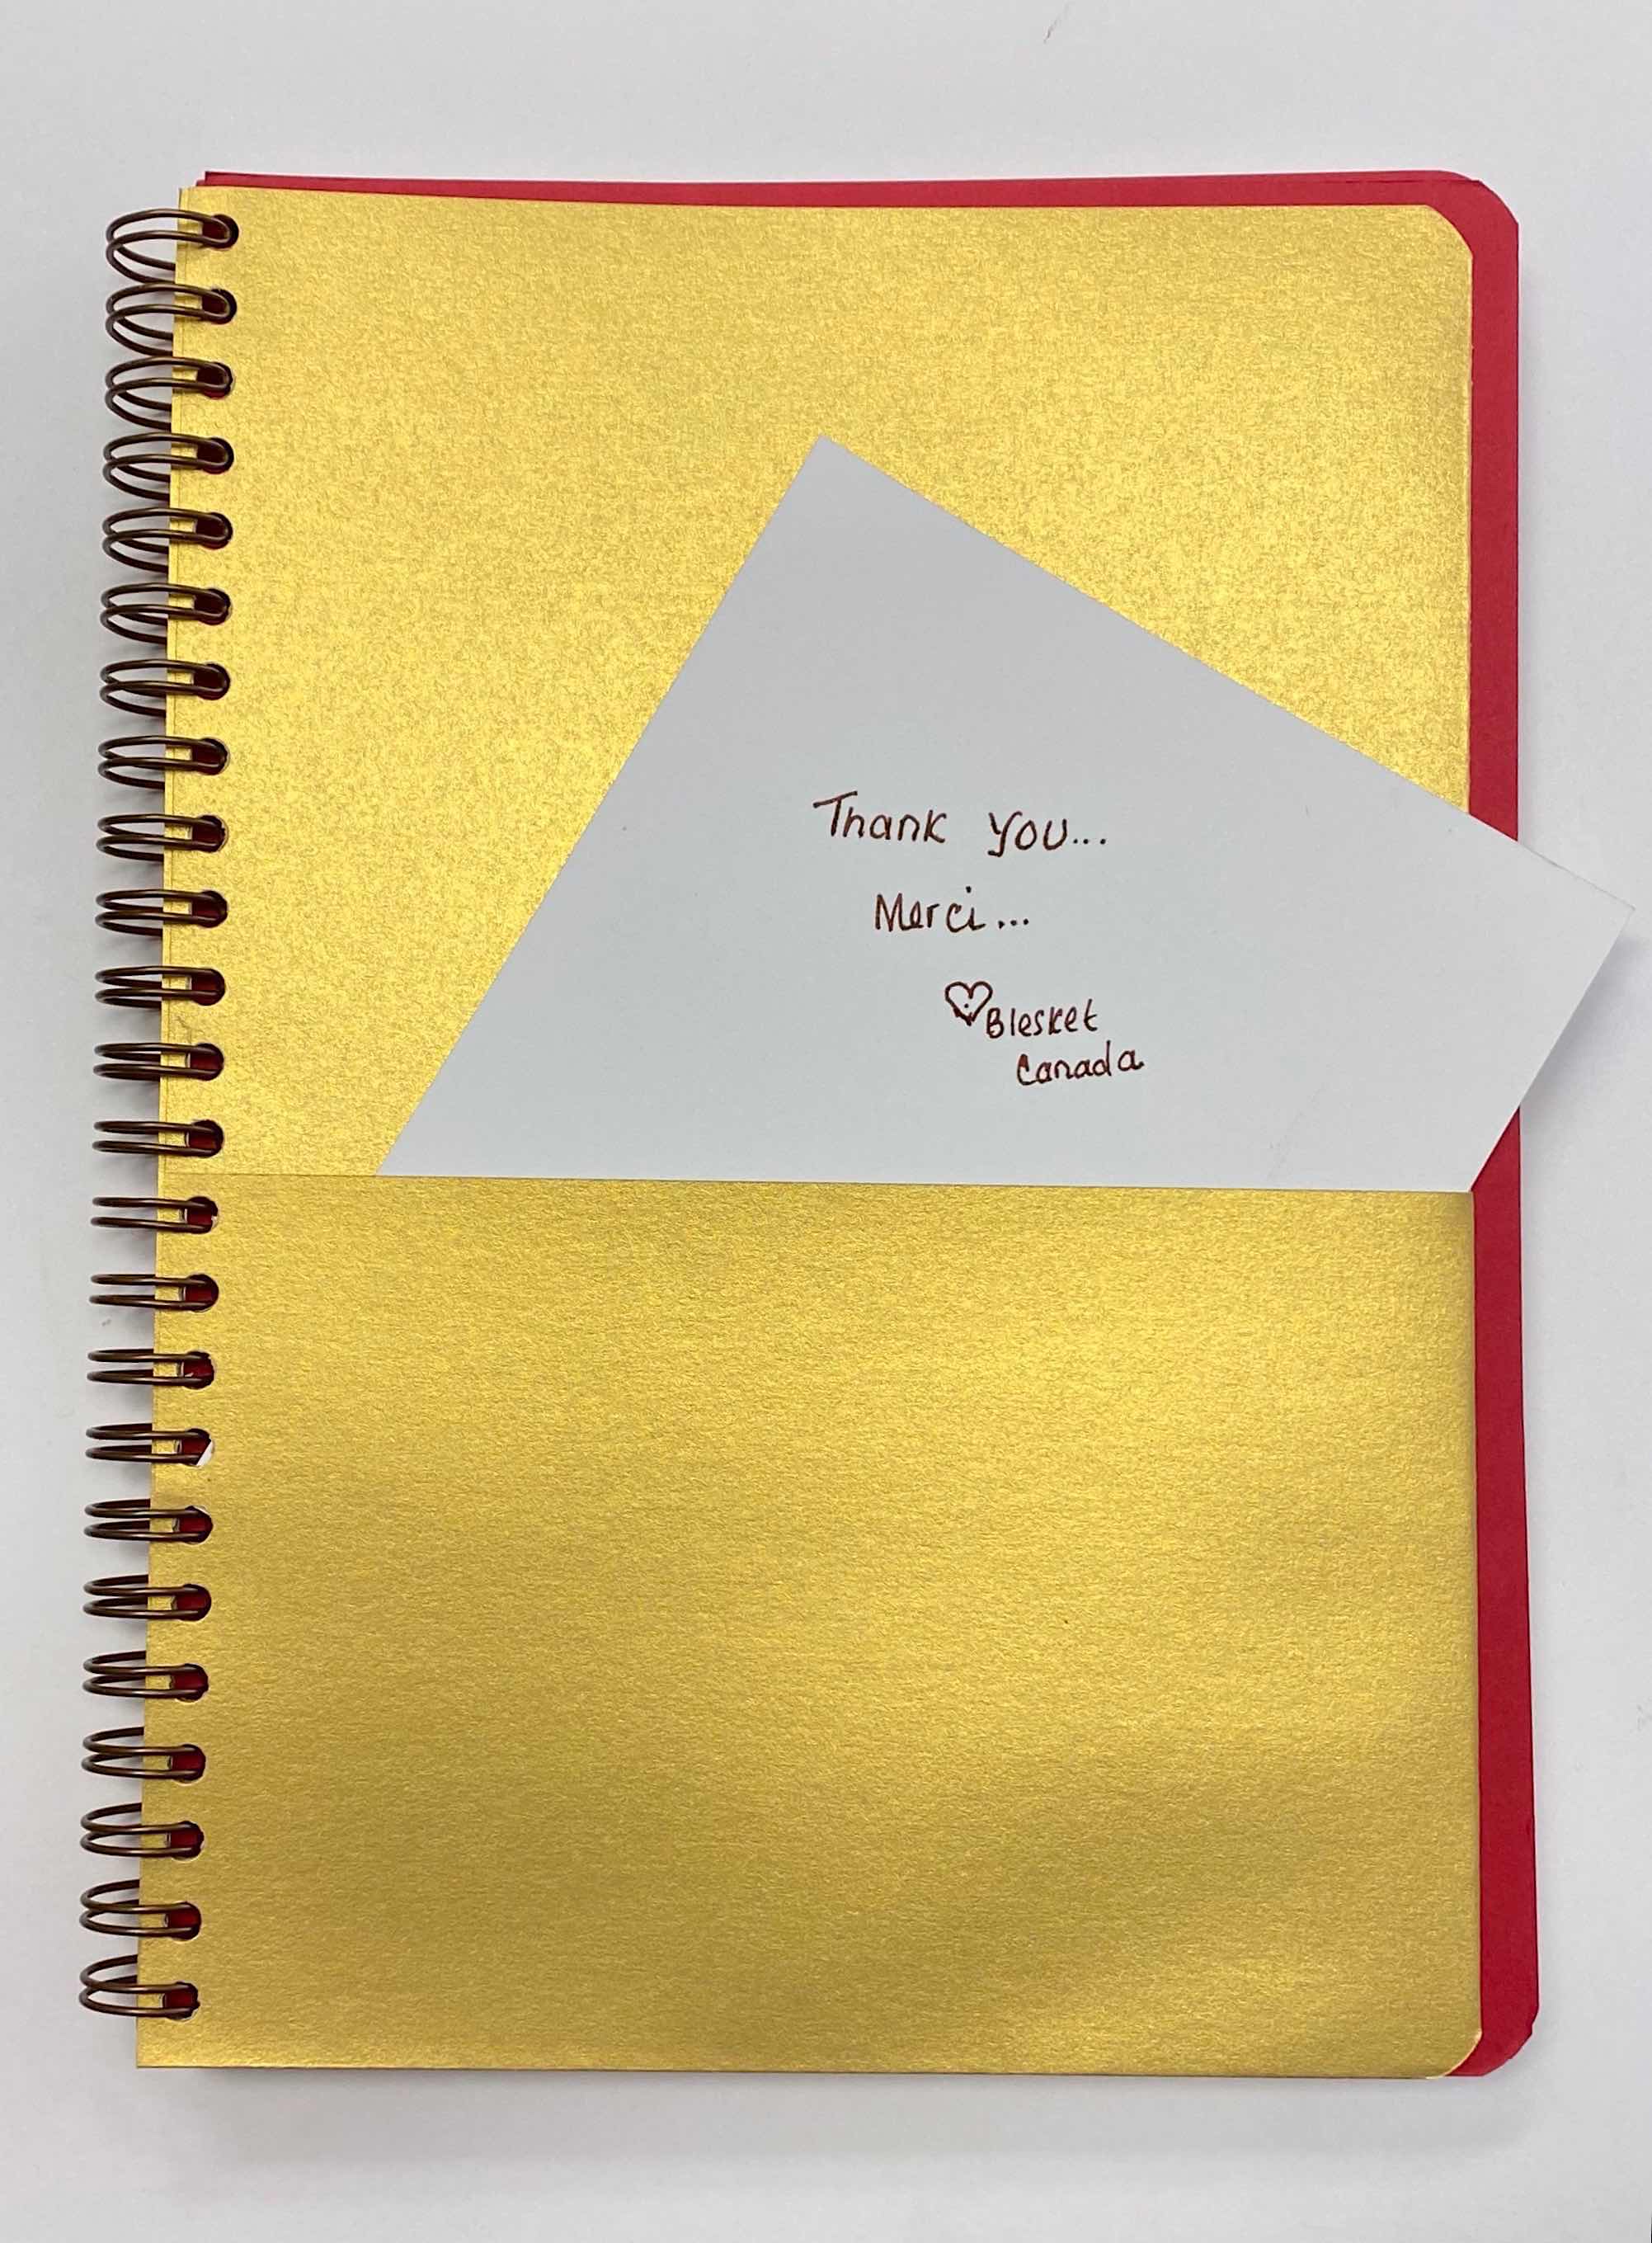 Thank you...
Merci...
Blesket
Canada